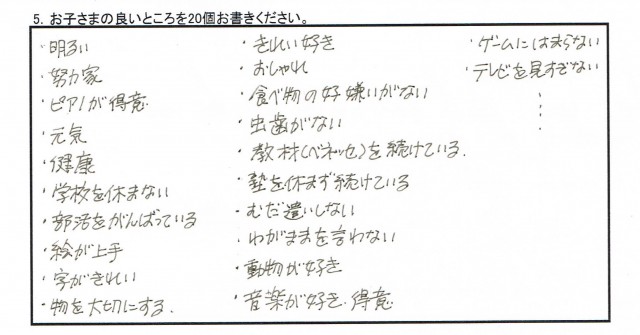 5. お子さまの良いところを20個お書きください。
・明るい
・努力家
・ピアノが得意
・元気
・健康
・学校を休まない
・部活をがんばっている
・絵が上手
・字がきれい
・物を大切にする.
・きれい好き
・おしゃれ
・食べ物の好嫌いがない
・虫歯がない
・教材(ベネッセ)を続けている.
・塾を休まず続けている
・むだ遣いしない
・わがままを言わない
・動物が好き
・音楽が好き・得意
・ゲームにはまらない
・テレビを見すぎない